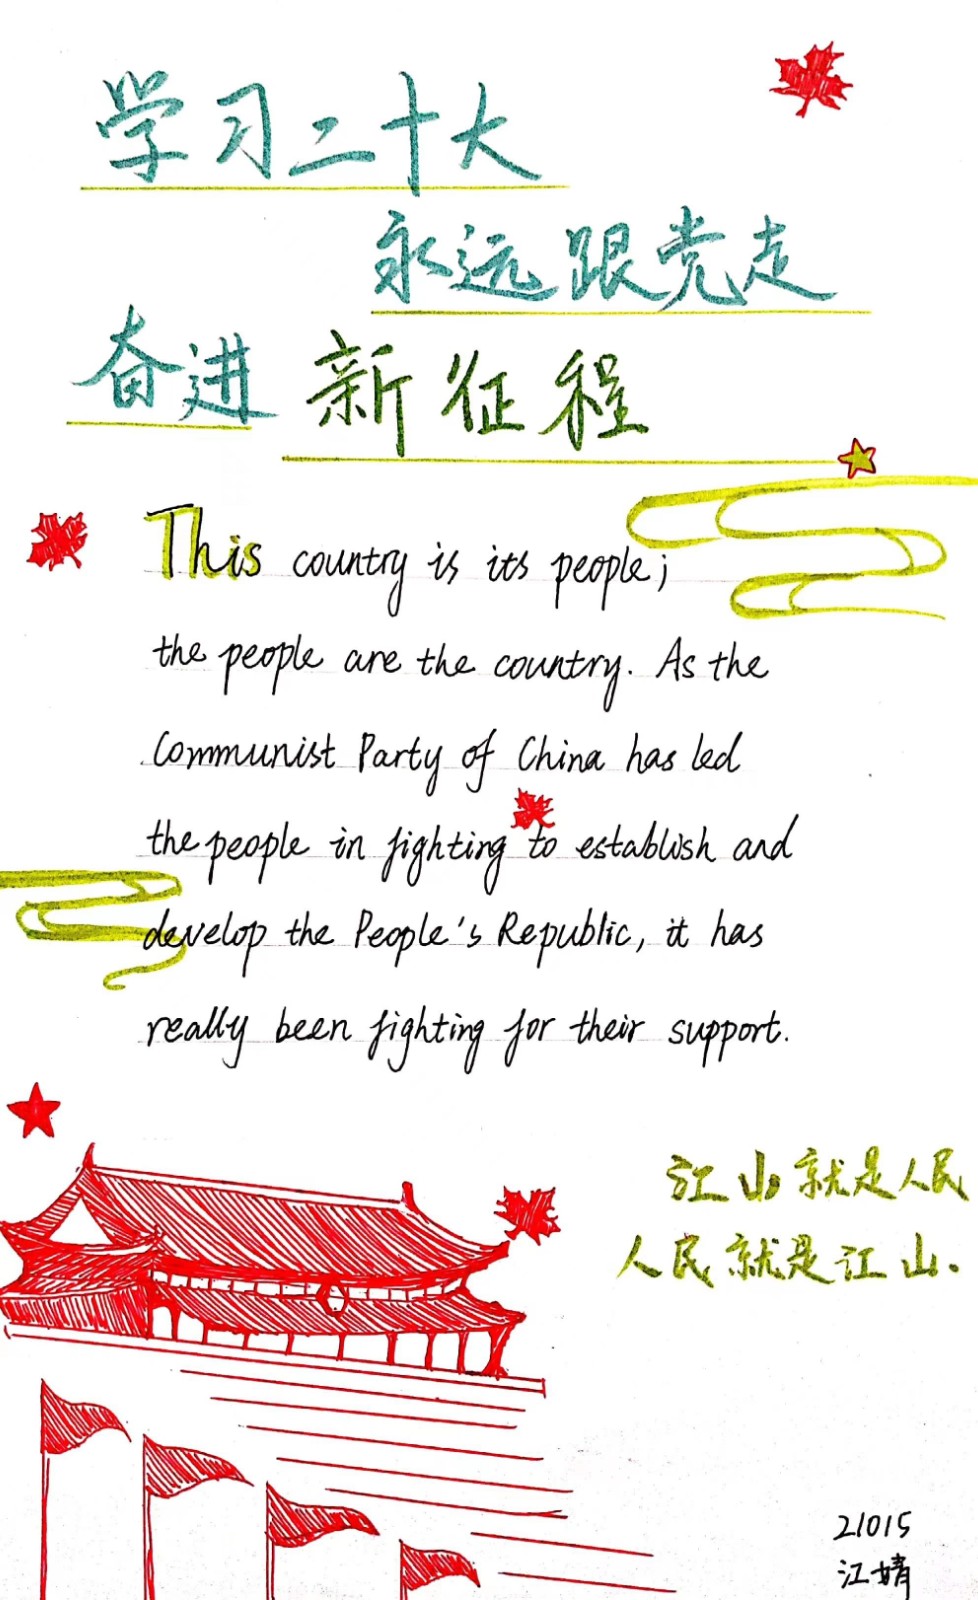 学习二十大
永远跟党走
奋进新征程
This country is its people;
the people are the country. As the
Communist Party of China has led
the people in fighting to establish and
develop the People's Republic, it has
really been fighting for their support.
江山就是人民
人民就是江山.
21015
江婧